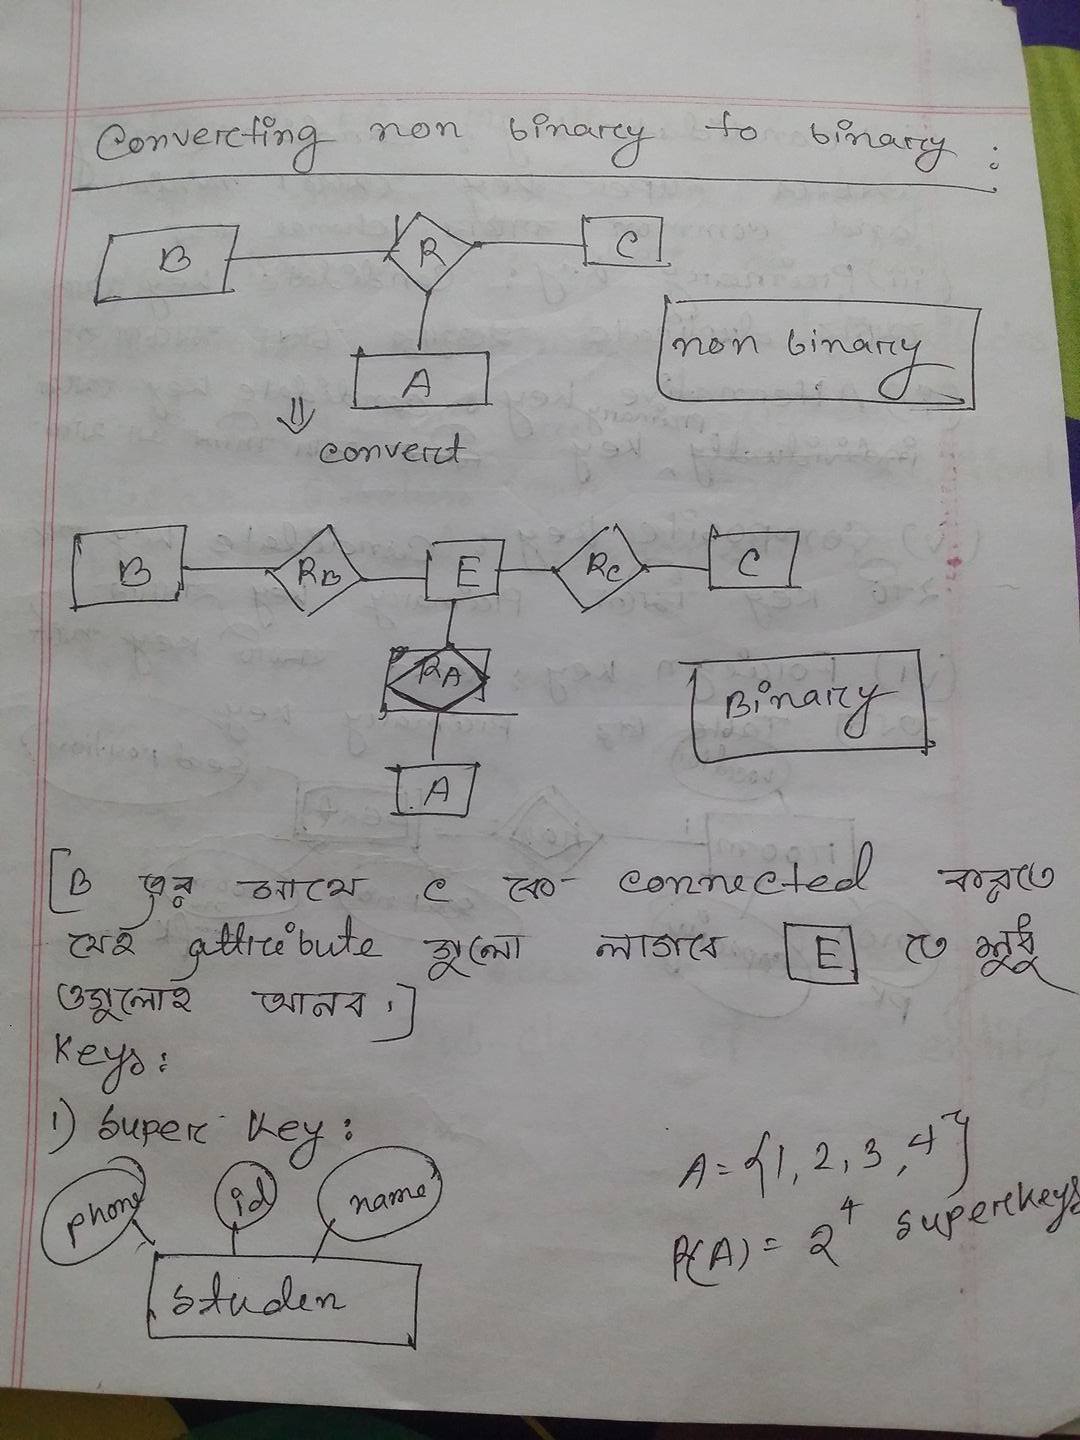 Converting non binary to binary :
B R C
non binary
A
⇓ convert
B RB E RC C
RA
Binary
A
[B এর সাথে C কে connected করতে
যেই attribute গুলো লাগবে E তে শুধু
ওগুলোই আনব।]
Keys:
1) Super Key:
phone id name
Studen
A = {1, 2, 3, 4}
P(A) = 2^4 superkeys